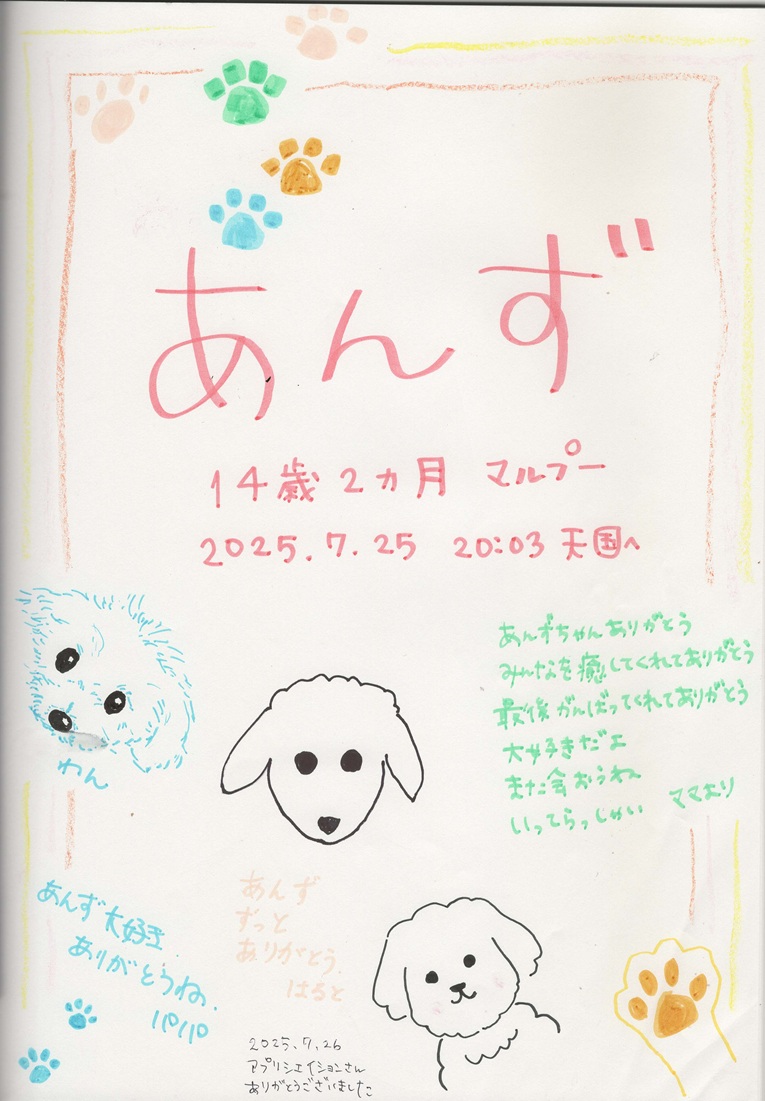 あんず
14歳2カ月 マルプー
2025.7.25 20:03 天国へ
あんずちゃんありがとう
みんなを癒してくれてありがとう
最後がんばってくれてありがとう
大好きだよ
また会おうね
いってらっしゃい ママより
わん
あんず大好き
ありがとうね.
パパ
あんず
ずっと
ありがとう.
はると
2025.7.26
アプリシエイションさん
ありがとうございました